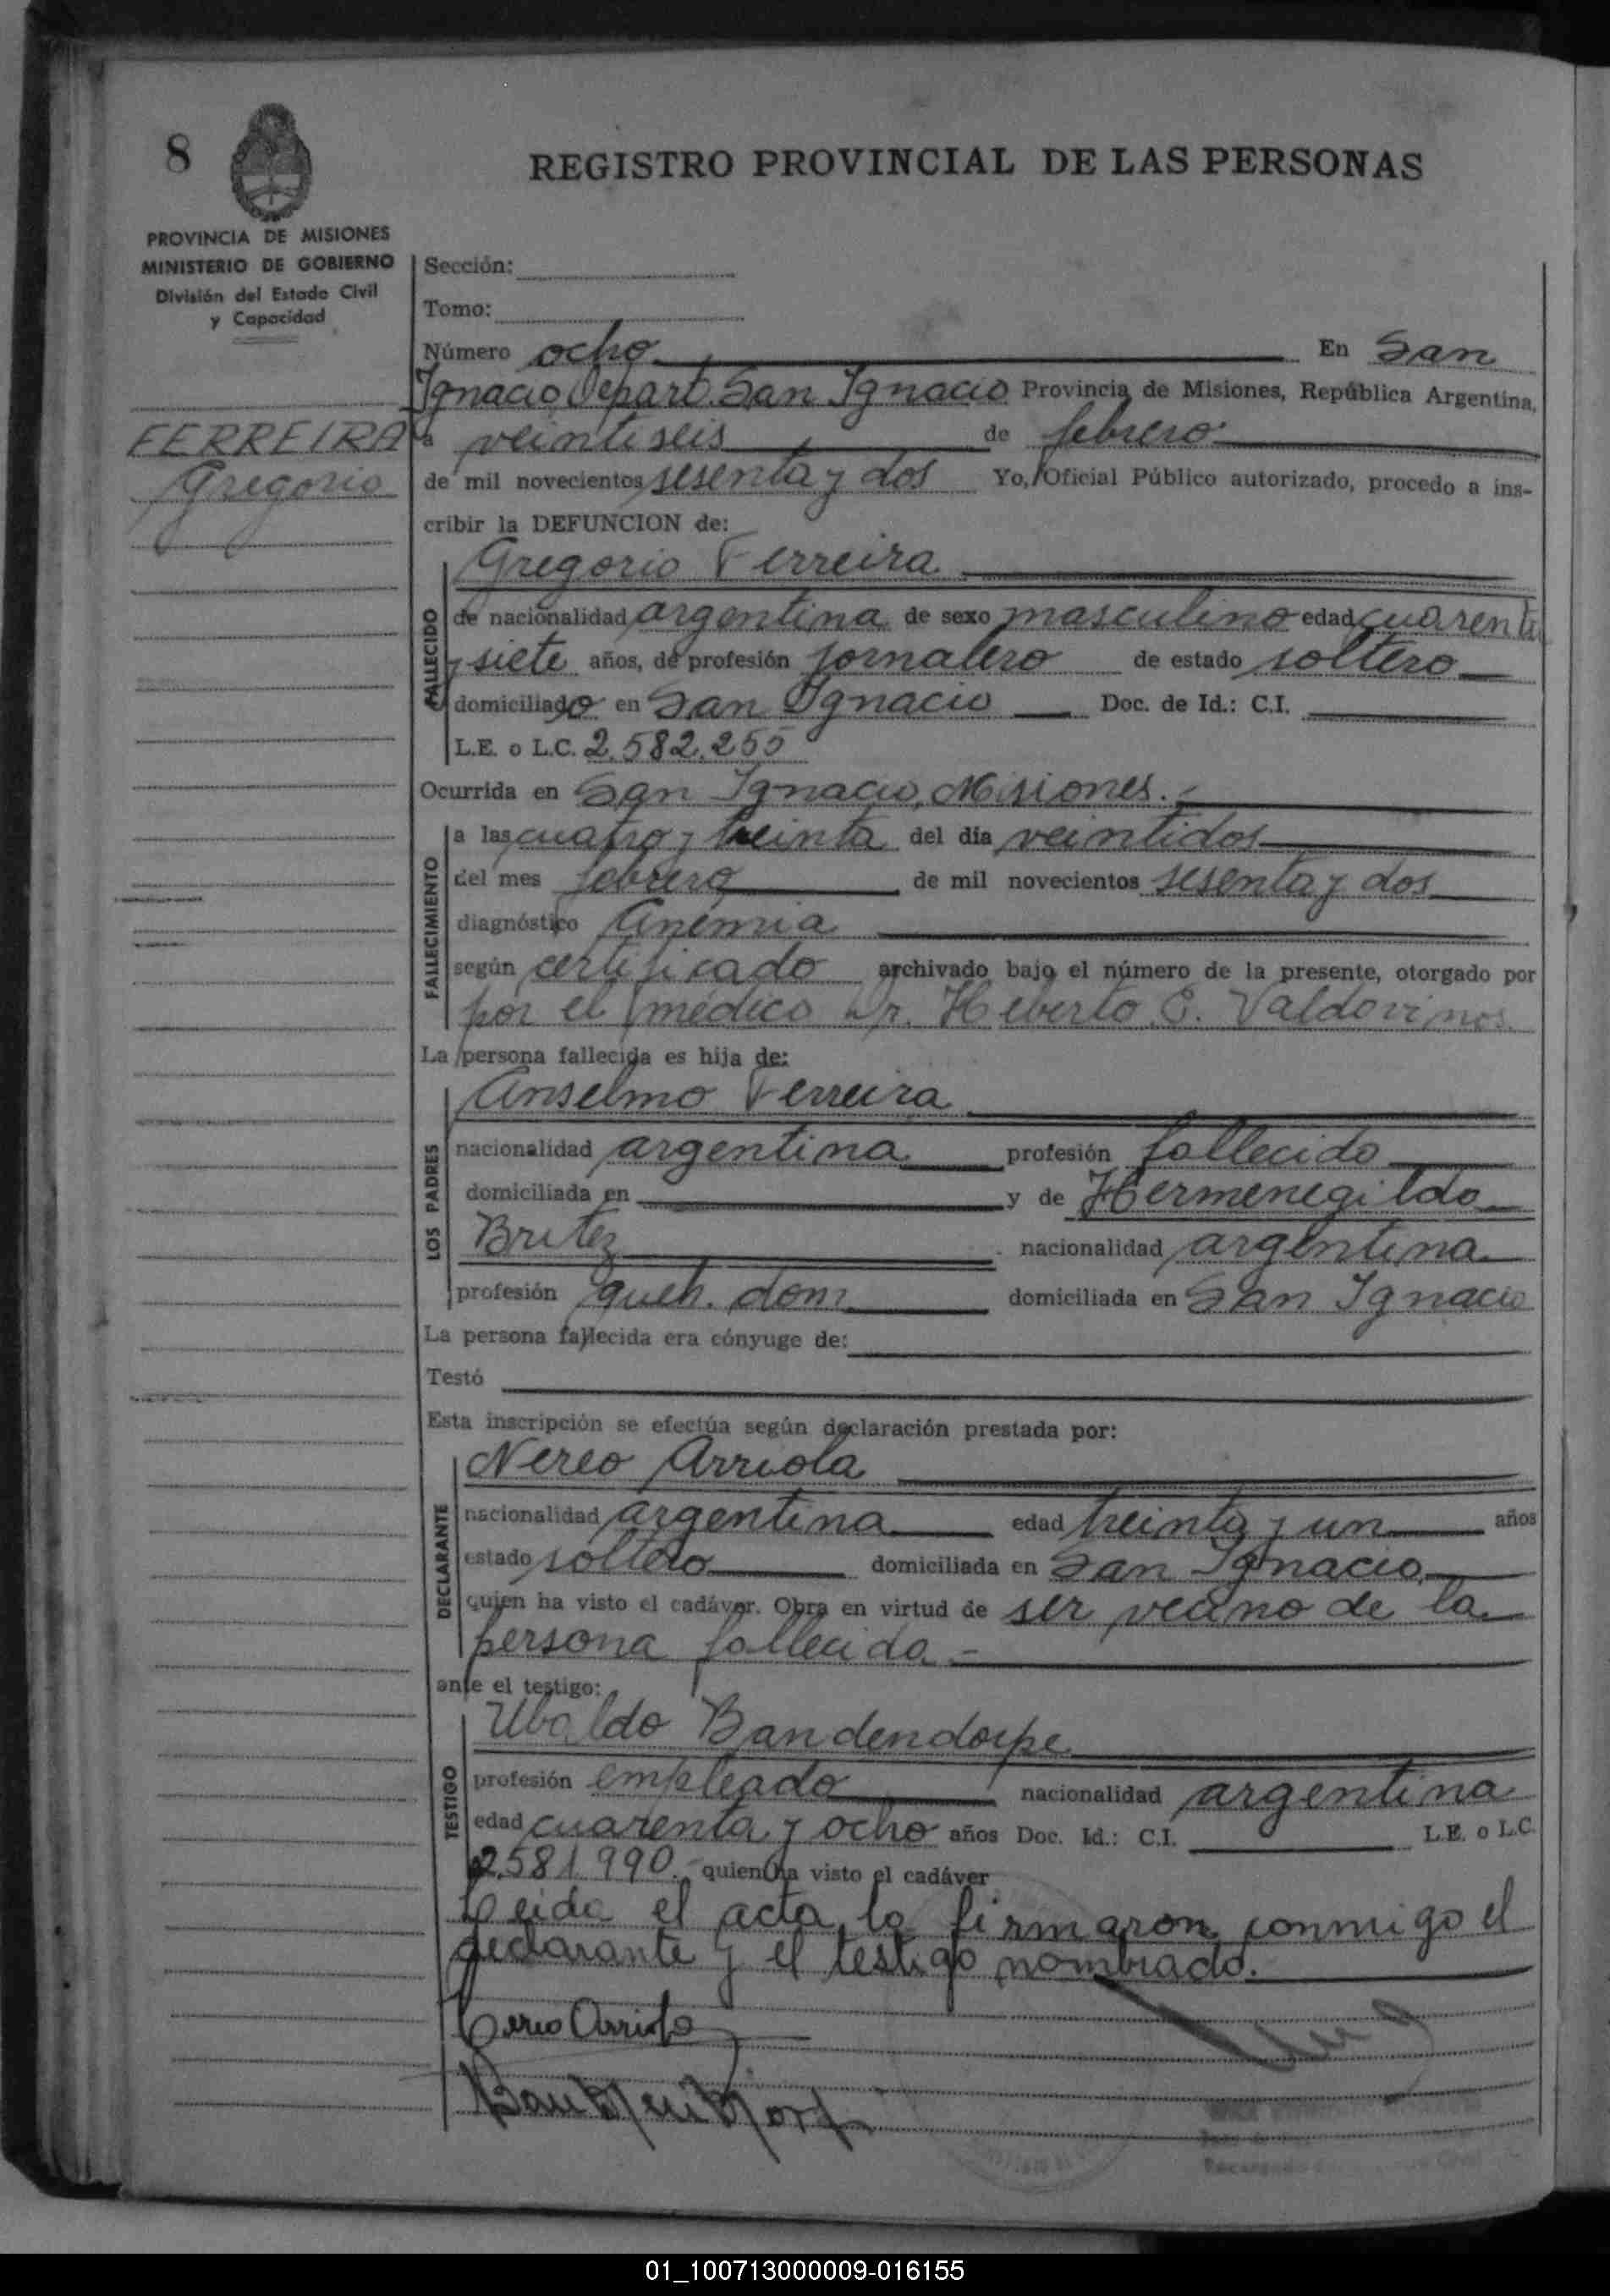 8
REGISTRO PROVINCIAL DE LAS PERSONAS
PROVINCIA DE MISIONES
MINISTERIO DE GOBIERNO
División del Estado Civil
y Capacidad
FERREIRA
Gregorio
Sección:
Tomo:
Número ocho En San
Ignacio, Depart. San Ignacio Provincia de Misiones, República Argentina,
a veintiseis de febrero
de mil novecientos sesenta y dos Yo, Oficial Público autorizado, procedo a ins-
cribir la DEFUNCION de:
FALLECIDO
Gregorio Ferreira
de nacionalidad argentina de sexo masculino edad cuarenta
y siete años, de profesión jornalero de estado soltero
domiciliado en San Ignacio Doc. de Id.: C.I.
L.E. o L.C. 2.582.255
Ocurrida en San Ignacio, Misiones.-
FALLECIMIENTO
a las cuatro y treinta del día veintidos
del mes febrero de mil novecientos sesenta y dos
diagnóstico anemia
según certificado archivado bajo el número de la presente, otorgado por
por el médico Dr. Heberto E. Valdovinos
La persona fallecida es hija de:
LOS PADRES
Anselmo Ferreira
nacionalidad argentina profesión fallecido
domiciliada en y de Hermenegilda
Britez nacionalidad argentina
profesión queh. dom. domiciliada en San Ignacio
La persona fallecida era cónyuge de:
Testó
Esta inscripción se efectúa según declaración prestada por:
DECLARANTE
Nereo Arriola
nacionalidad argentina edad treinta y un años
estado soltero domiciliada en San Ignacio,
quien ha visto el cadáver. Obra en virtud de ser vecino de la
persona fallecida.-
ante el testigo:
TESTIGO
Ubaldo Bandendorpe
profesión empleado nacionalidad argentina
edad cuarenta y ocho años Doc. Id.: C.I. L.E. o L.C.
2.581.990.- quien ha visto el cadáver
Leida el acta, la firmaron conmigo el
declarante y el testigo nombrado.
Nereo Arriola
01_100713000009-016155